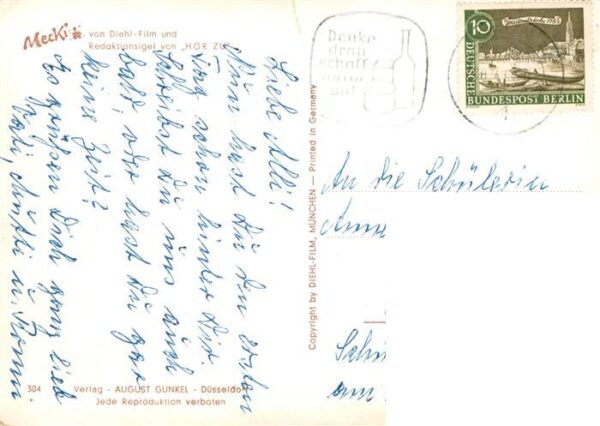 Mecki
von Diehl-Film und
Redaktionsigel von „HÖR ZU"
Liebe Alli!
Nun hast Du den ersten
Tag schon hinter Dir.
Schreibst Du uns auch
bald, oder hast Du gar
keine Zeit?
Es grüßen Dich ganz lieb
Vati, Mutti u. Romi
304
Verlag - AUGUST GUNKEL - Düsseldo
Jede Reproduktion verboten
Copyright by DIEHL-FILM, MÜNCHEN — Printed in Germany
Denke
dran
schaff
vorrat
an!
10
DEUTSCHE
BUNDESPOST BERLIN
An die Schülerin
Anne
Schü
am